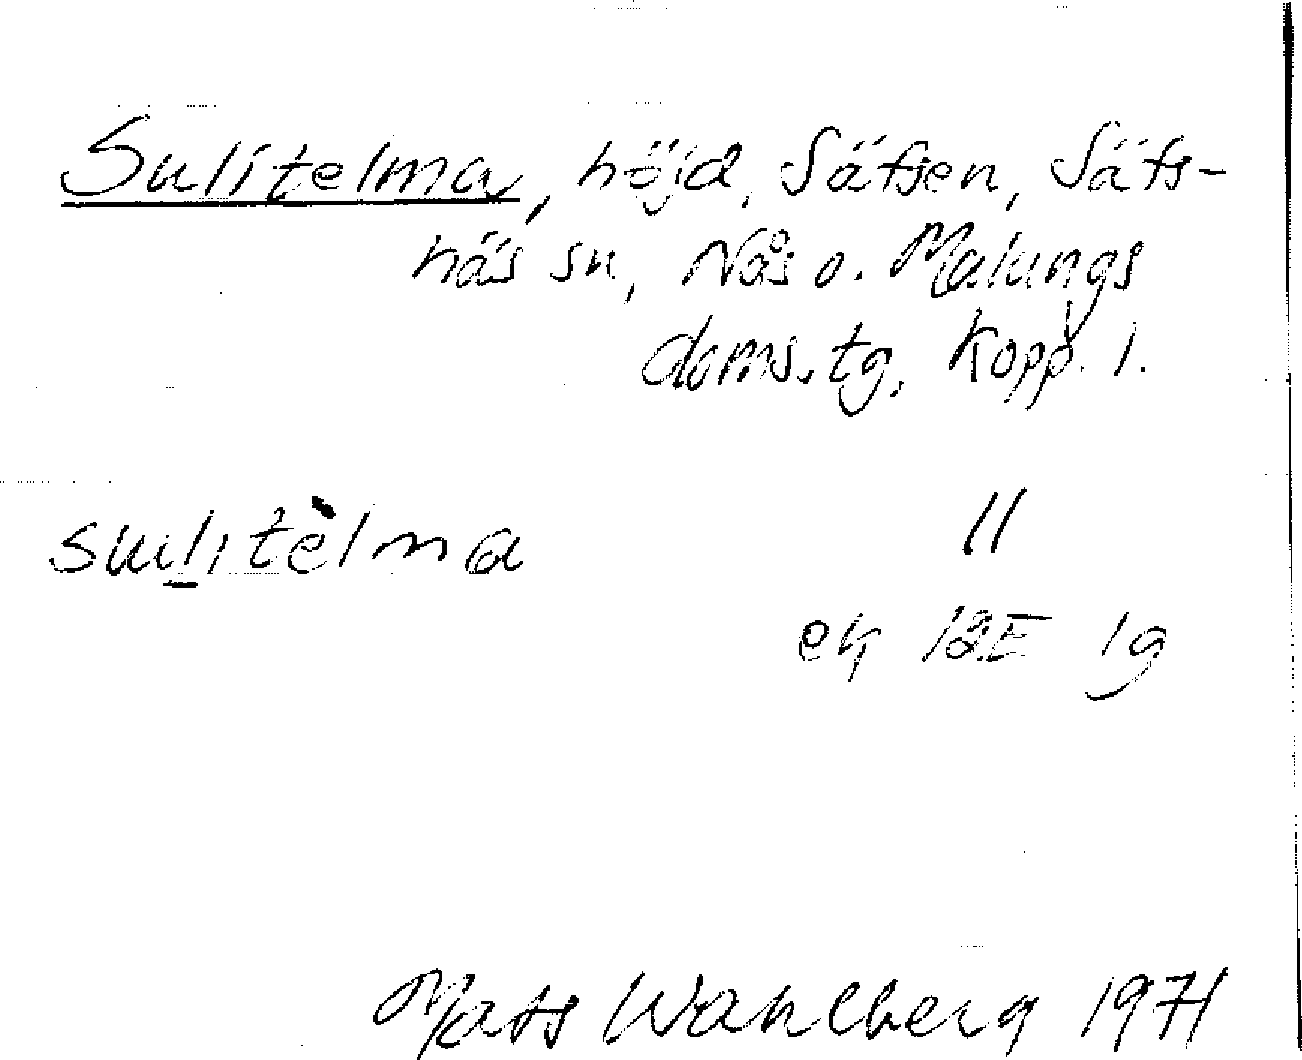 Sulitelma, höjd, Säfsen, Säfs-
näs sn, Nås o. Malungs
doms.tg, Kopp. l.
sulitèlma
ek 12E 1g
Mats Wahlberg 1971